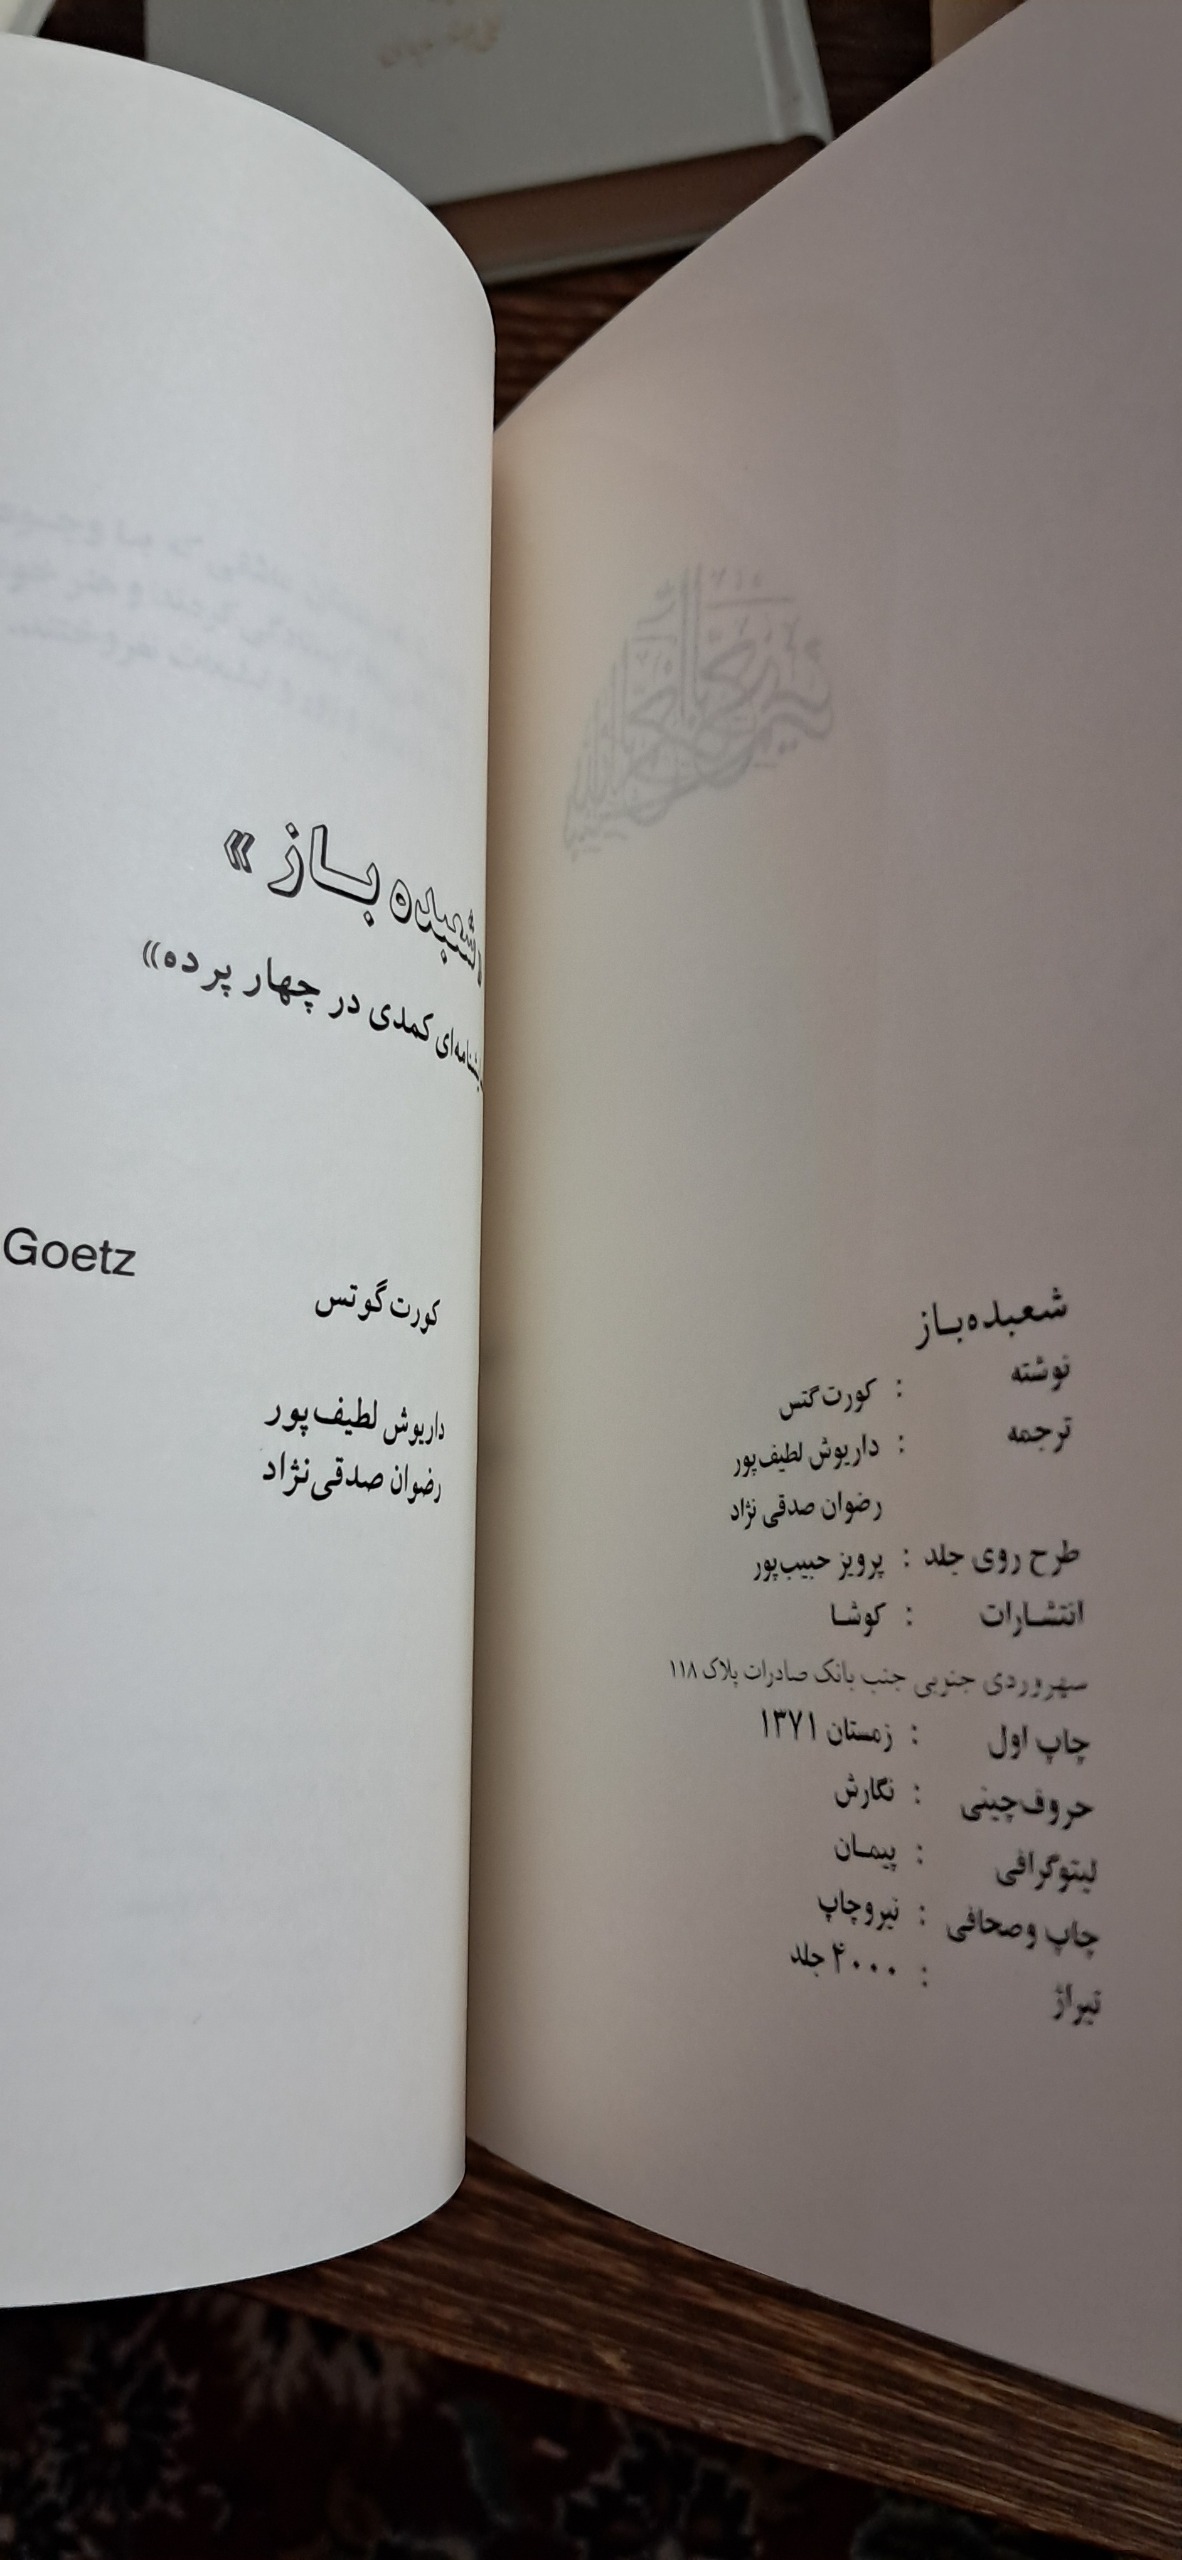 شعبده‌باز
نوشته : کورت گتس
ترجمه : داریوش لطیف‌پور
رضوان صدقی نژاد
طرح روی جلد : پرویز حبیب‌پور
انتشارات : کوشا
سهروردی جنوبی جنب بانک صادرات پلاک ۱۱۸
چاپ اول : زمستان ۱۳۷۱
حروف‌چینی : نگارش
لیتوگرافی : پیمان
چاپ وصحافی : نیروچاپ
تیراژ : ۴۰۰۰ جلد
شعبده باز »
کمدی در چهار پرده»
Goetz
کورت گوتس
داریوش لطیف‌پور
رضوان صدقی‌نژاد